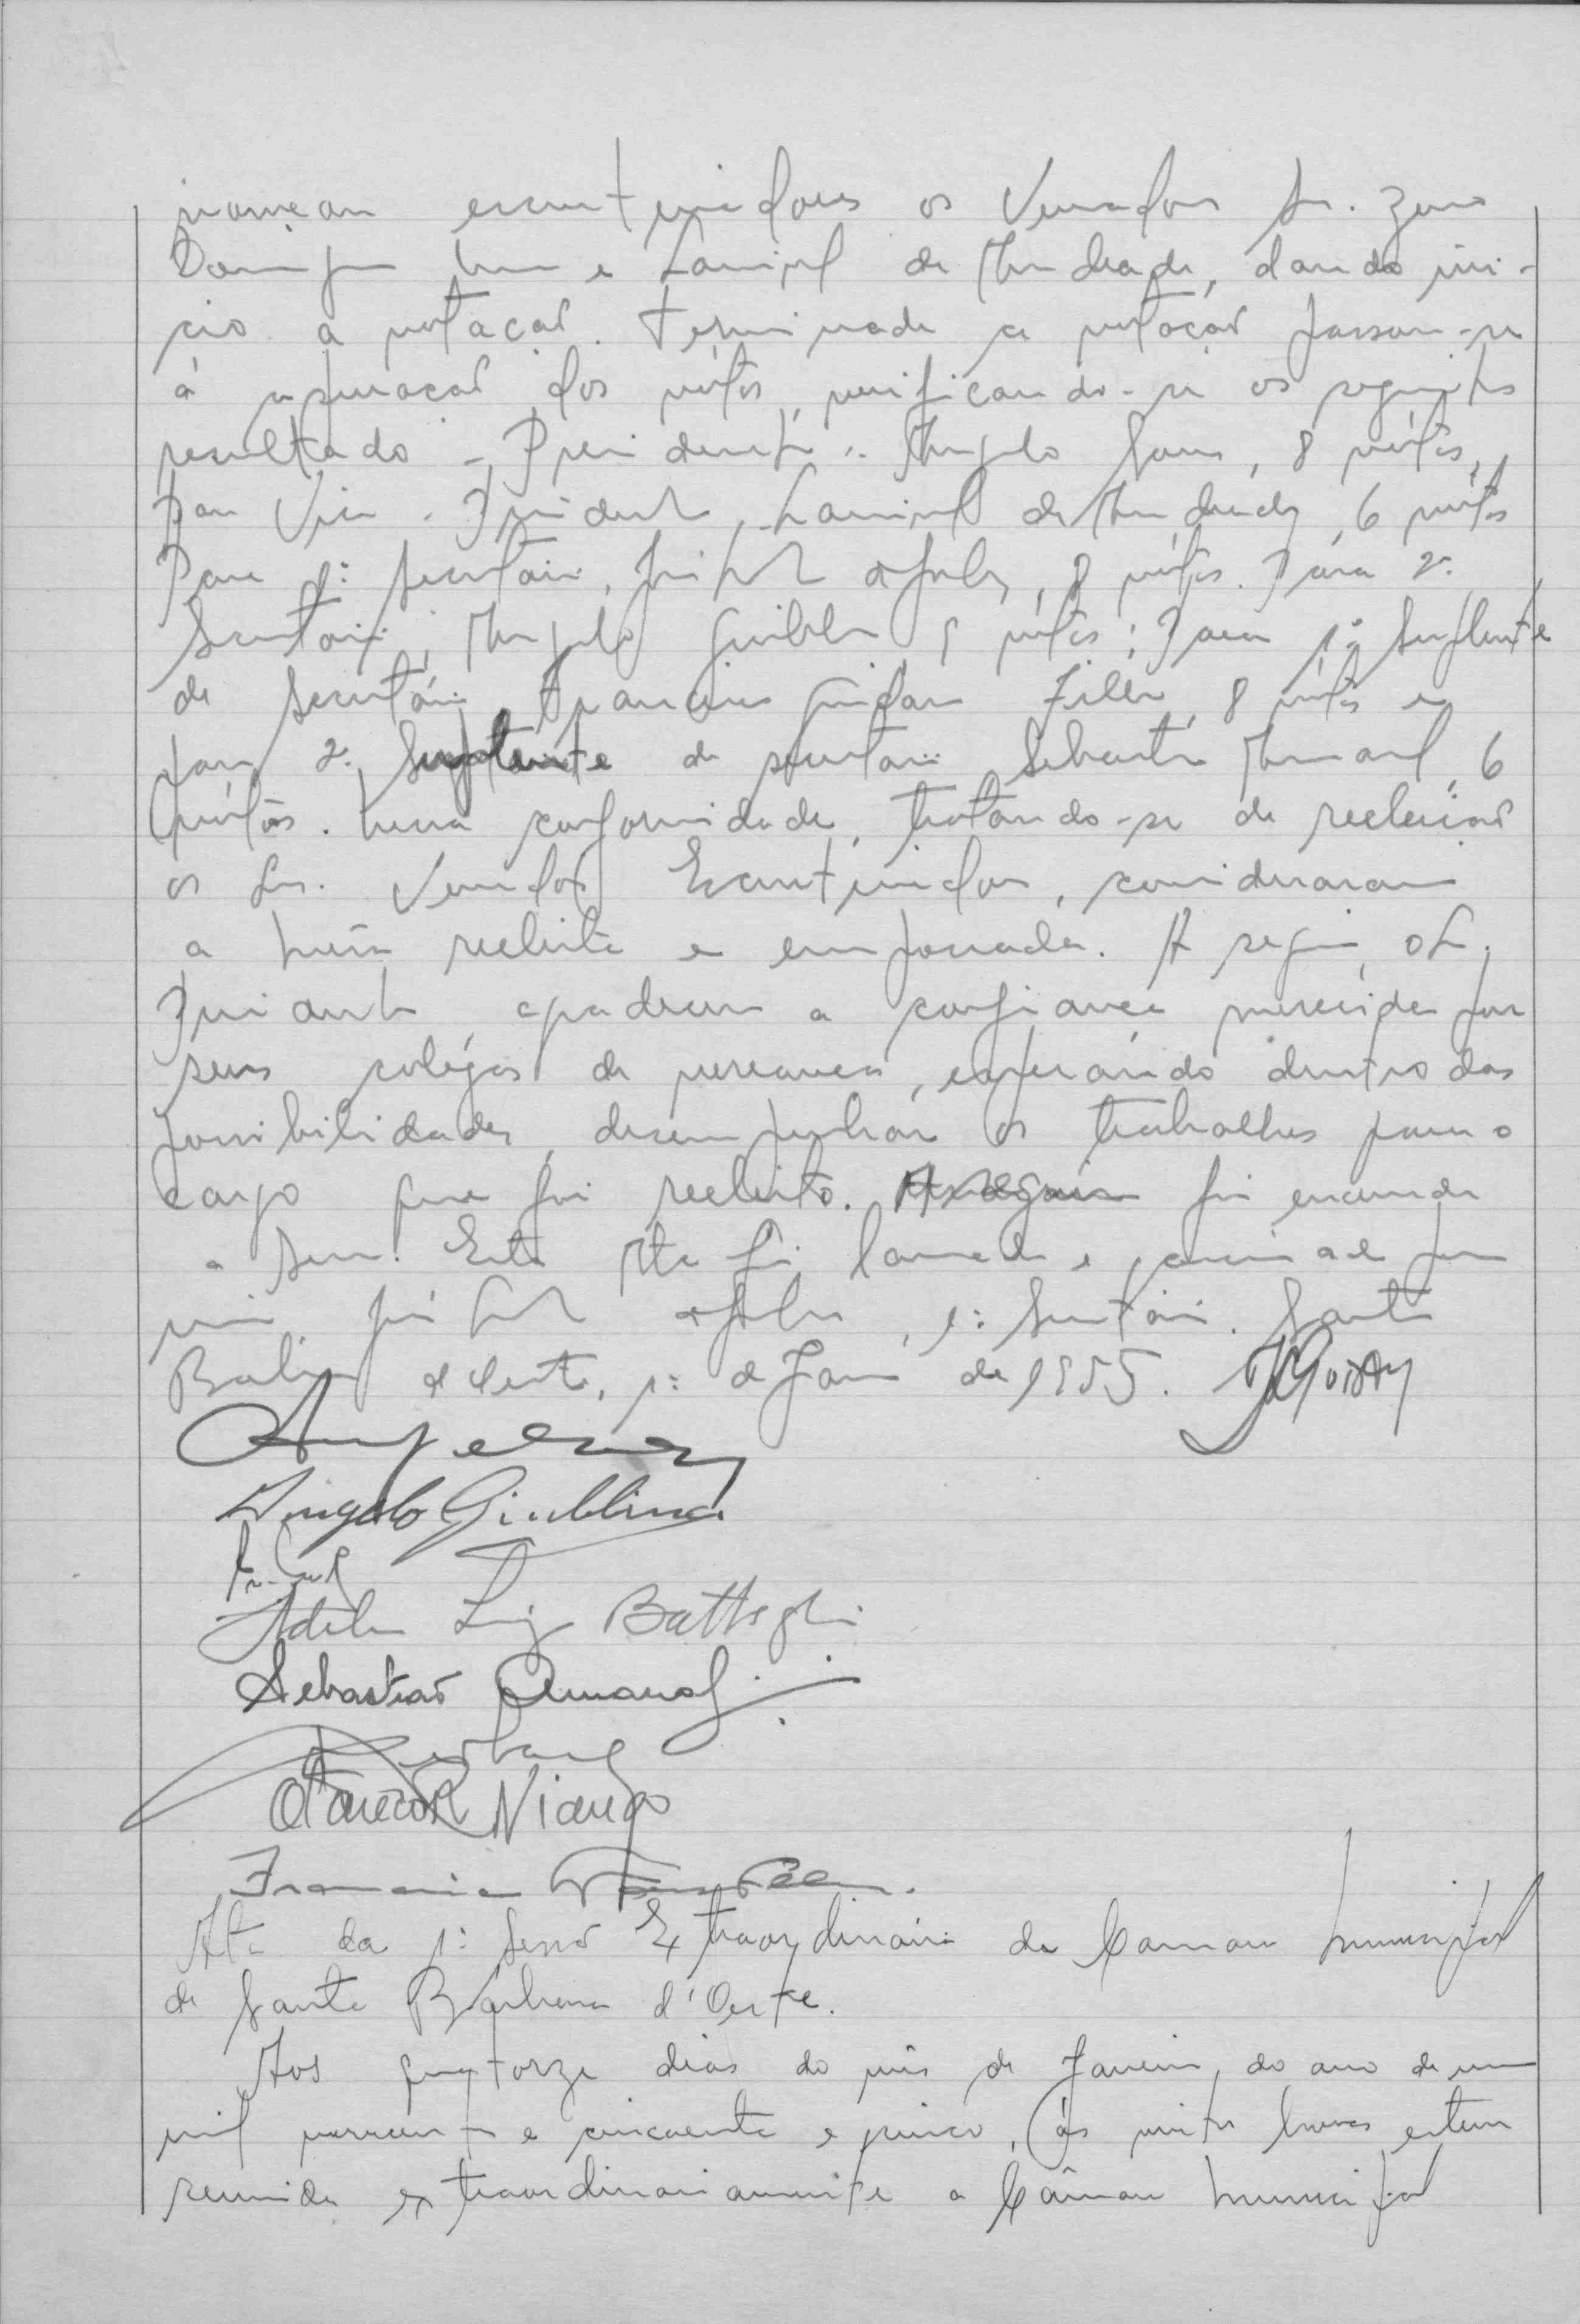 nomeou escrutinadores os Vereadores Srs. Zeno
Domingos e de Andrade, dando iní-
cio a votação. Terminada a votação passou-se
á apuração dos vótos, verificando-se os seguintes
resultado - Presidente: Angelo Sans, 8 vótos,
Para Vice-Presidente, de Andrade, 6 vótos
Para 1º Secretário, 8 vótos. Pára 2º
Secretário, Angelo Giubbina vótos; Para 1º Suplente
de Secretário Francisco Filho, 8 vótos e
para 2º Suplente de secretário Sebastião Armanol, 6
vótos. Nessa conformidade, tratando-se de reeleição
os Srs. Vereadores Escrutinadores, consideraram
a mesa reeleita e empossada. A seguir, o Sr.
Presidente agradeceu a confiança merecida por
seus colégas de vereança, esperando dentro das
possibilidades, desempenhar os trabalhos para o
cargo que foi reeleito. A seguir foi encerrada
a sessão. Esta Ata foi lavrada e por
mim, 1º Secretário. Santa
Barbara d'Oeste, 1º de Janeiro de 1955.
Angelo Giubbina
Adelino Luiz Battagin
Sebastião Armanol
Niango
Francisco
Ata da 1ª Sessão Extraordinária da Camara Municipal
de Santa Bárbara d'Oeste.
Aos quatorze dias do mês de Janeiro, do ano de um
mil novecentos e cincoenta e cinco, ás vinte horas esteve
reunida extraordinariamente a Câmara Municipal